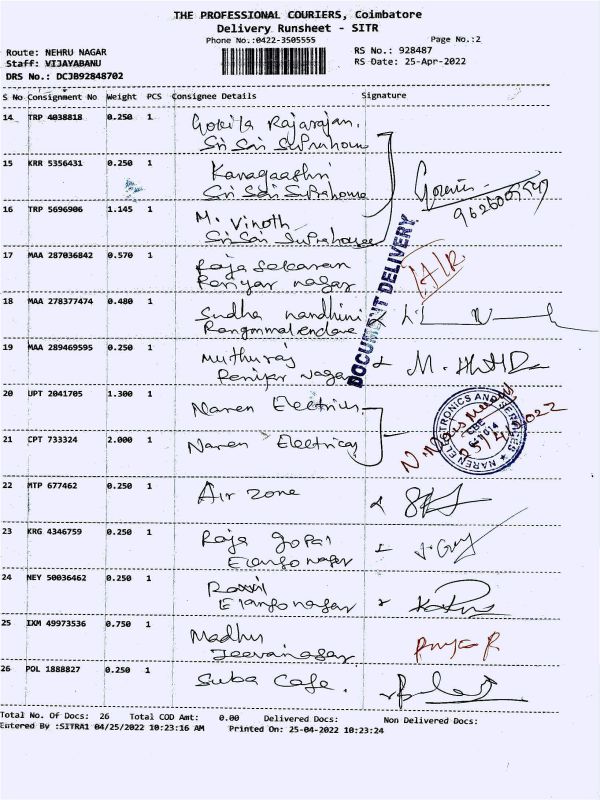 THE PROFESSIONAL COURIERS, Coimbatore
Delivery Runsheet - SITR
Phone No.:0422-3505555 Page No.:2
Route: NEHRU NAGAR RS No.: 928487
Staff: VIJAYABANU RS Date: 25-Apr-2022
DRS No.: DCJB92848702
S No Consignment No Weight PCS Consignee Details Signature
14 TRP 4038818 0.250 1 Gokila Rajarajan.
Sri Sai SuPrahome
15 KRR 5356431 0.250 1 Kanagaashri
Sri Sai SuPrahome
16 TRP 5696906 1.145 1 M. Vinoth
Sri Sai SuPrahome
17 MAA 287036842 0.570 1 Raja Sekaran
Periyar nagar
18 MAA 278377474 0.480 1 Sudha nandhini
Rangammal enclave
19 MAA 289469595 0.250 1 Muthuraj
Periyar Nagar
DOCUMENT DELIVERY
20 UPT 2041705 1.300 1 Naren Electrics
21 CPT 733324 2.000 1 Naren Electrics
NAREN ELECTRONICS AND SERVICES
CBE
22 MTP 677462 0.250 1 Air zone
23 KRG 4346759 0.250 1 Raja gopal
Elango nagar
24 NEY 50036462 0.250 1
Elango nagar
25 IXM 49973536 0.750 1 Madhu
Jeevanagar
26 POL 1888827 0.250 1 Suba Cafe.
Total No. Of Docs: 26 Total COD Amt: 0.00 Delivered Docs: Non Delivered Docs:
Entered By :SITRA1 04/25/2022 10:23:16 AM Printed On: 25-04-2022 10:23:24